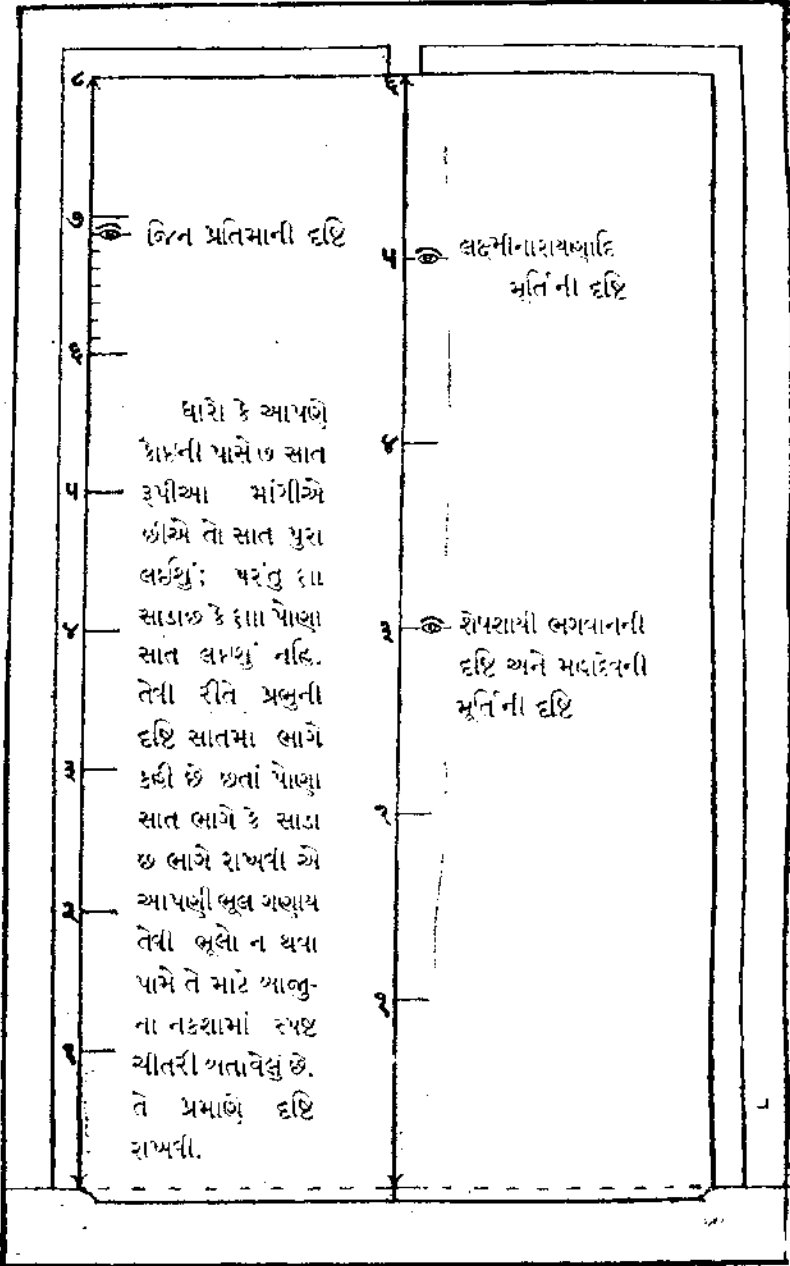 ૮
૭
જિન પ્રતિમાની દષ્ટિ
૬
ધારો કે આપણે
કોઇની પાસે ૭ સાત
૫ રૂપીઆ માંગીએ
છીએ તો સાત પુરા
લઈશું; પરંતુ ૬ાા
૪ સાડાછ કે ૬ાાા પોણા
સાત લઇશું નહિ.
તેવી રીતે પ્રભુની
દષ્ટિ સાતમા ભાગે
૩ કહી છે છતાં પોણા
સાત ભાગે કે સાડા
છ ભાગે રાખવી એ
૨ આપણી ભૂલ ગણાય
તેવી ભૂલો ન થવા
પામે તે માટે બાજુ-
ના નકશામાં સ્પષ્ટ
૧ ચીતરી બતાવેલું છે.
તે પ્રમાણે દષ્ટિ
રાખવી.
૬
૫ લક્ષ્મીનારાયણાદિ
મૂર્તિની દષ્ટિ
૪
૩ શેષશાયી ભગવાનની
દષ્ટિ અને મહાદેવની
મૂર્તિની દષ્ટિ
૨
૧